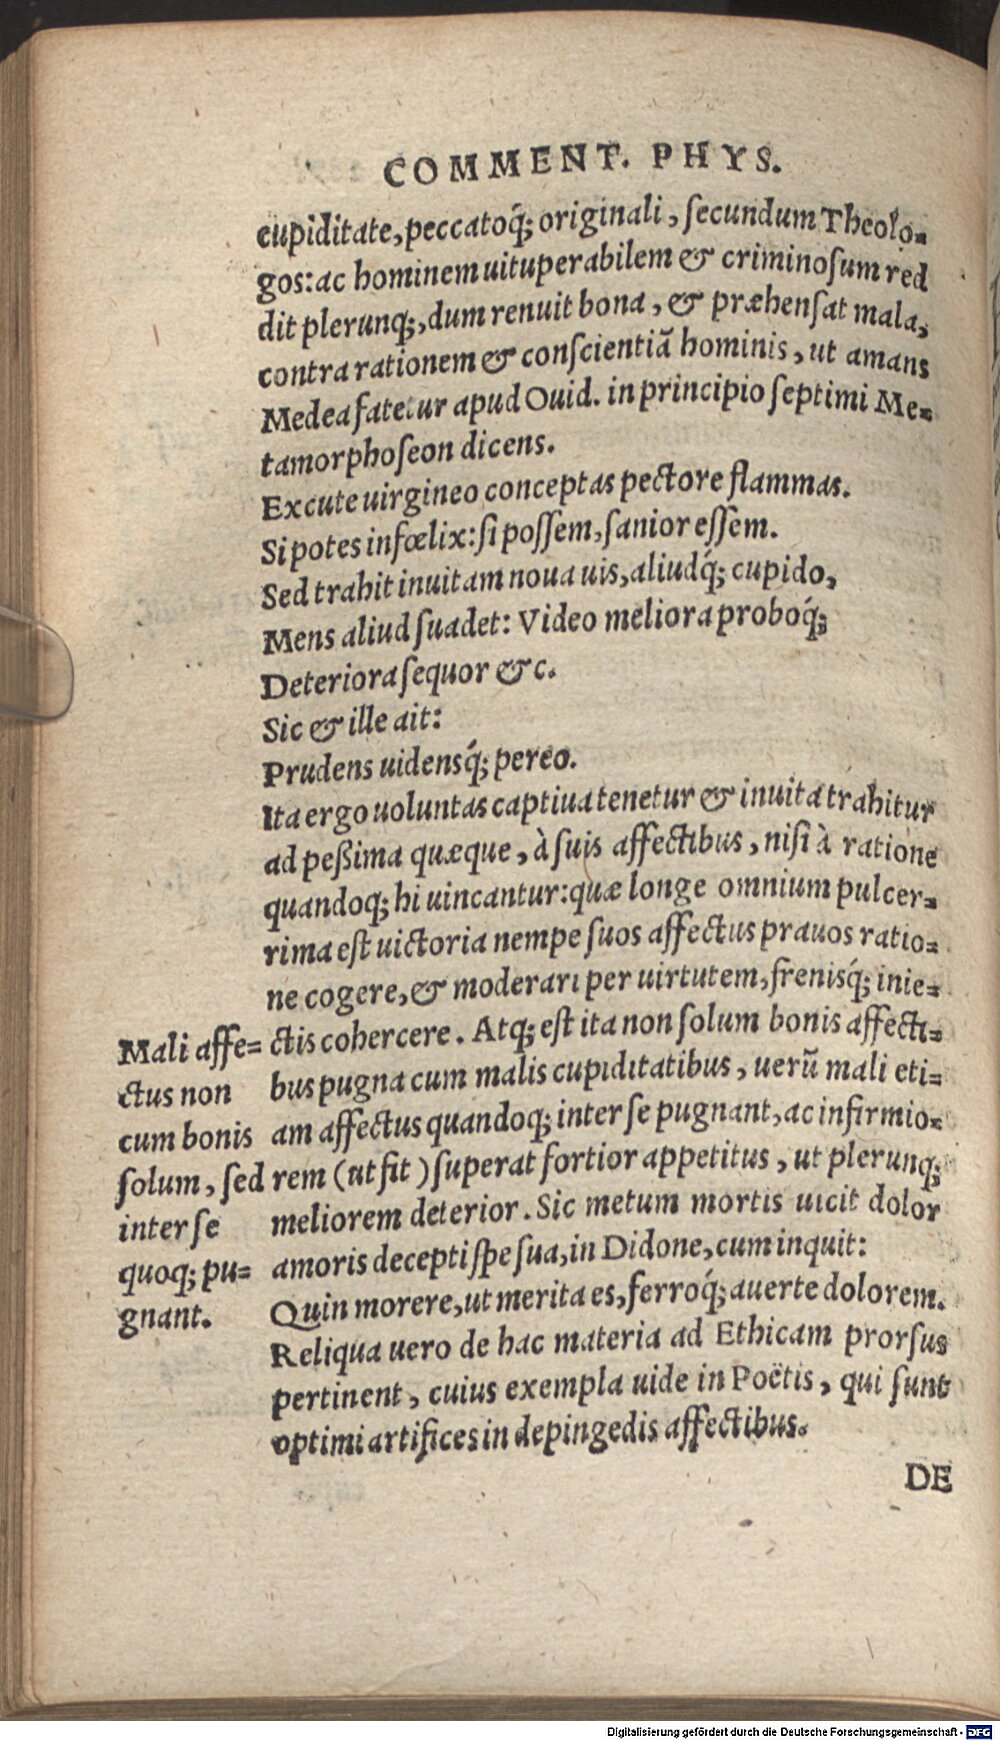 COMMENT. PHYS.
cupiditate, peccatoq́; originali, ſecundum Theolo-
gos: ac hominem uituperabilem & criminoſum red
dit plerunq;, dum renuit bona, & præhenſat mala,
contra rationem & conſcientiā hominis, ut amans
Medea fatetur apud Ouid. in principio ſeptimi Me-
tamorphoſeon dicens.
Excute uirgineo conceptas pectore flammas.
Si potes infœlix: ſi poſſem, ſanior eſſem.
Sed trahit inuitam noua uis, aliudq́; cupido,
Mens aliud ſuadet: Video meliora proboq́;
Deteriora ſequor &c.
Sic & ille ait:
Prudens uidensq́; pereo.
Ita ergo uoluntas captiua tenetur & inuita trahitur
ad peßima quæque, à ſuis affectibus, niſi à ratione
quandoq; hi uincantur: quæ longe omnium pulcer-
rima eſt uictoria nempe ſuos affectus prauos ratio-
ne cogere, & moderari per uirtutem, frenisq́; inie-
ctis cohercere. Atq; eſt ita non ſolum bonis affecti-
bus pugna cum malis cupiditatibus, uerū mali eti-
am affectus quandoq; inter ſe pugnant, ac infirmio-
rem (ut fit) ſuperat fortior appetitus, ut plerunq;
meliorem deterior. Sic metum mortis uicit dolor
amoris decepti ſpe ſua, in Didone, cum inquit:
Quin morere, ut merita es, ferroq́; auerte dolorem.
Reliqua uero de hac materia ad Ethicam prorſus
pertinent, cuius exempla uide in Poëtis, qui ſunt
optimi artifices in depingedis affectibus.
Mali affe-
ctus non
cum bonis
ſolum, ſed
inter ſe
quoq; pu-
gnant.
DE
Digitalisierung gefördert durch die Deutsche Forschungsgemeinschaft - DFG